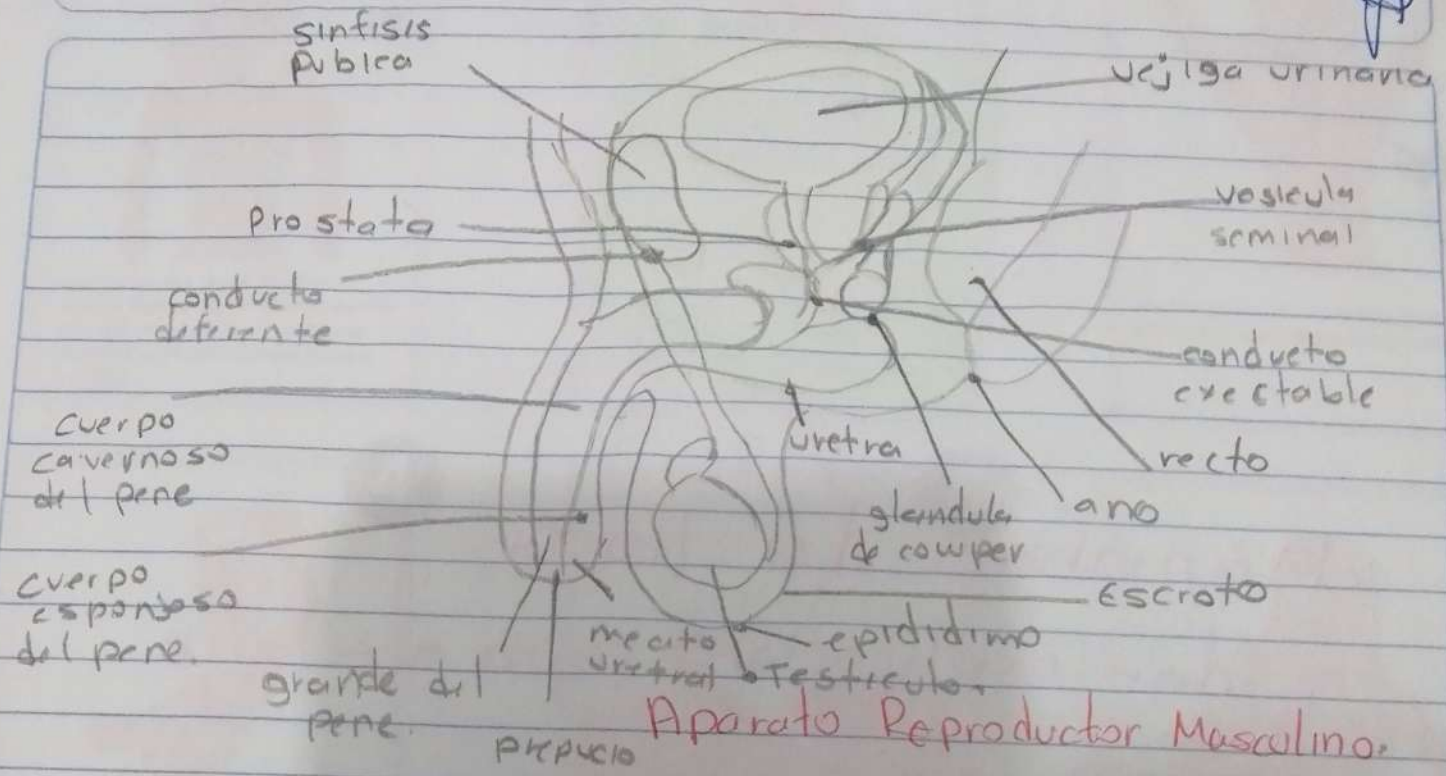 sinfisis
publca
vejiga urinaria
prostata
vesicula
seminal
conducto
deferente
conducto
eyectable
cuerpo
cavernoso
del pene
uretra
recto
glandula
de cowper
ano
cuerpo
esponjoso
del pene.
Escroto
meato
uretral
epididimo
Testiculo.
grande del
pene.
prepucio
Aparato Reproductor Masculino.